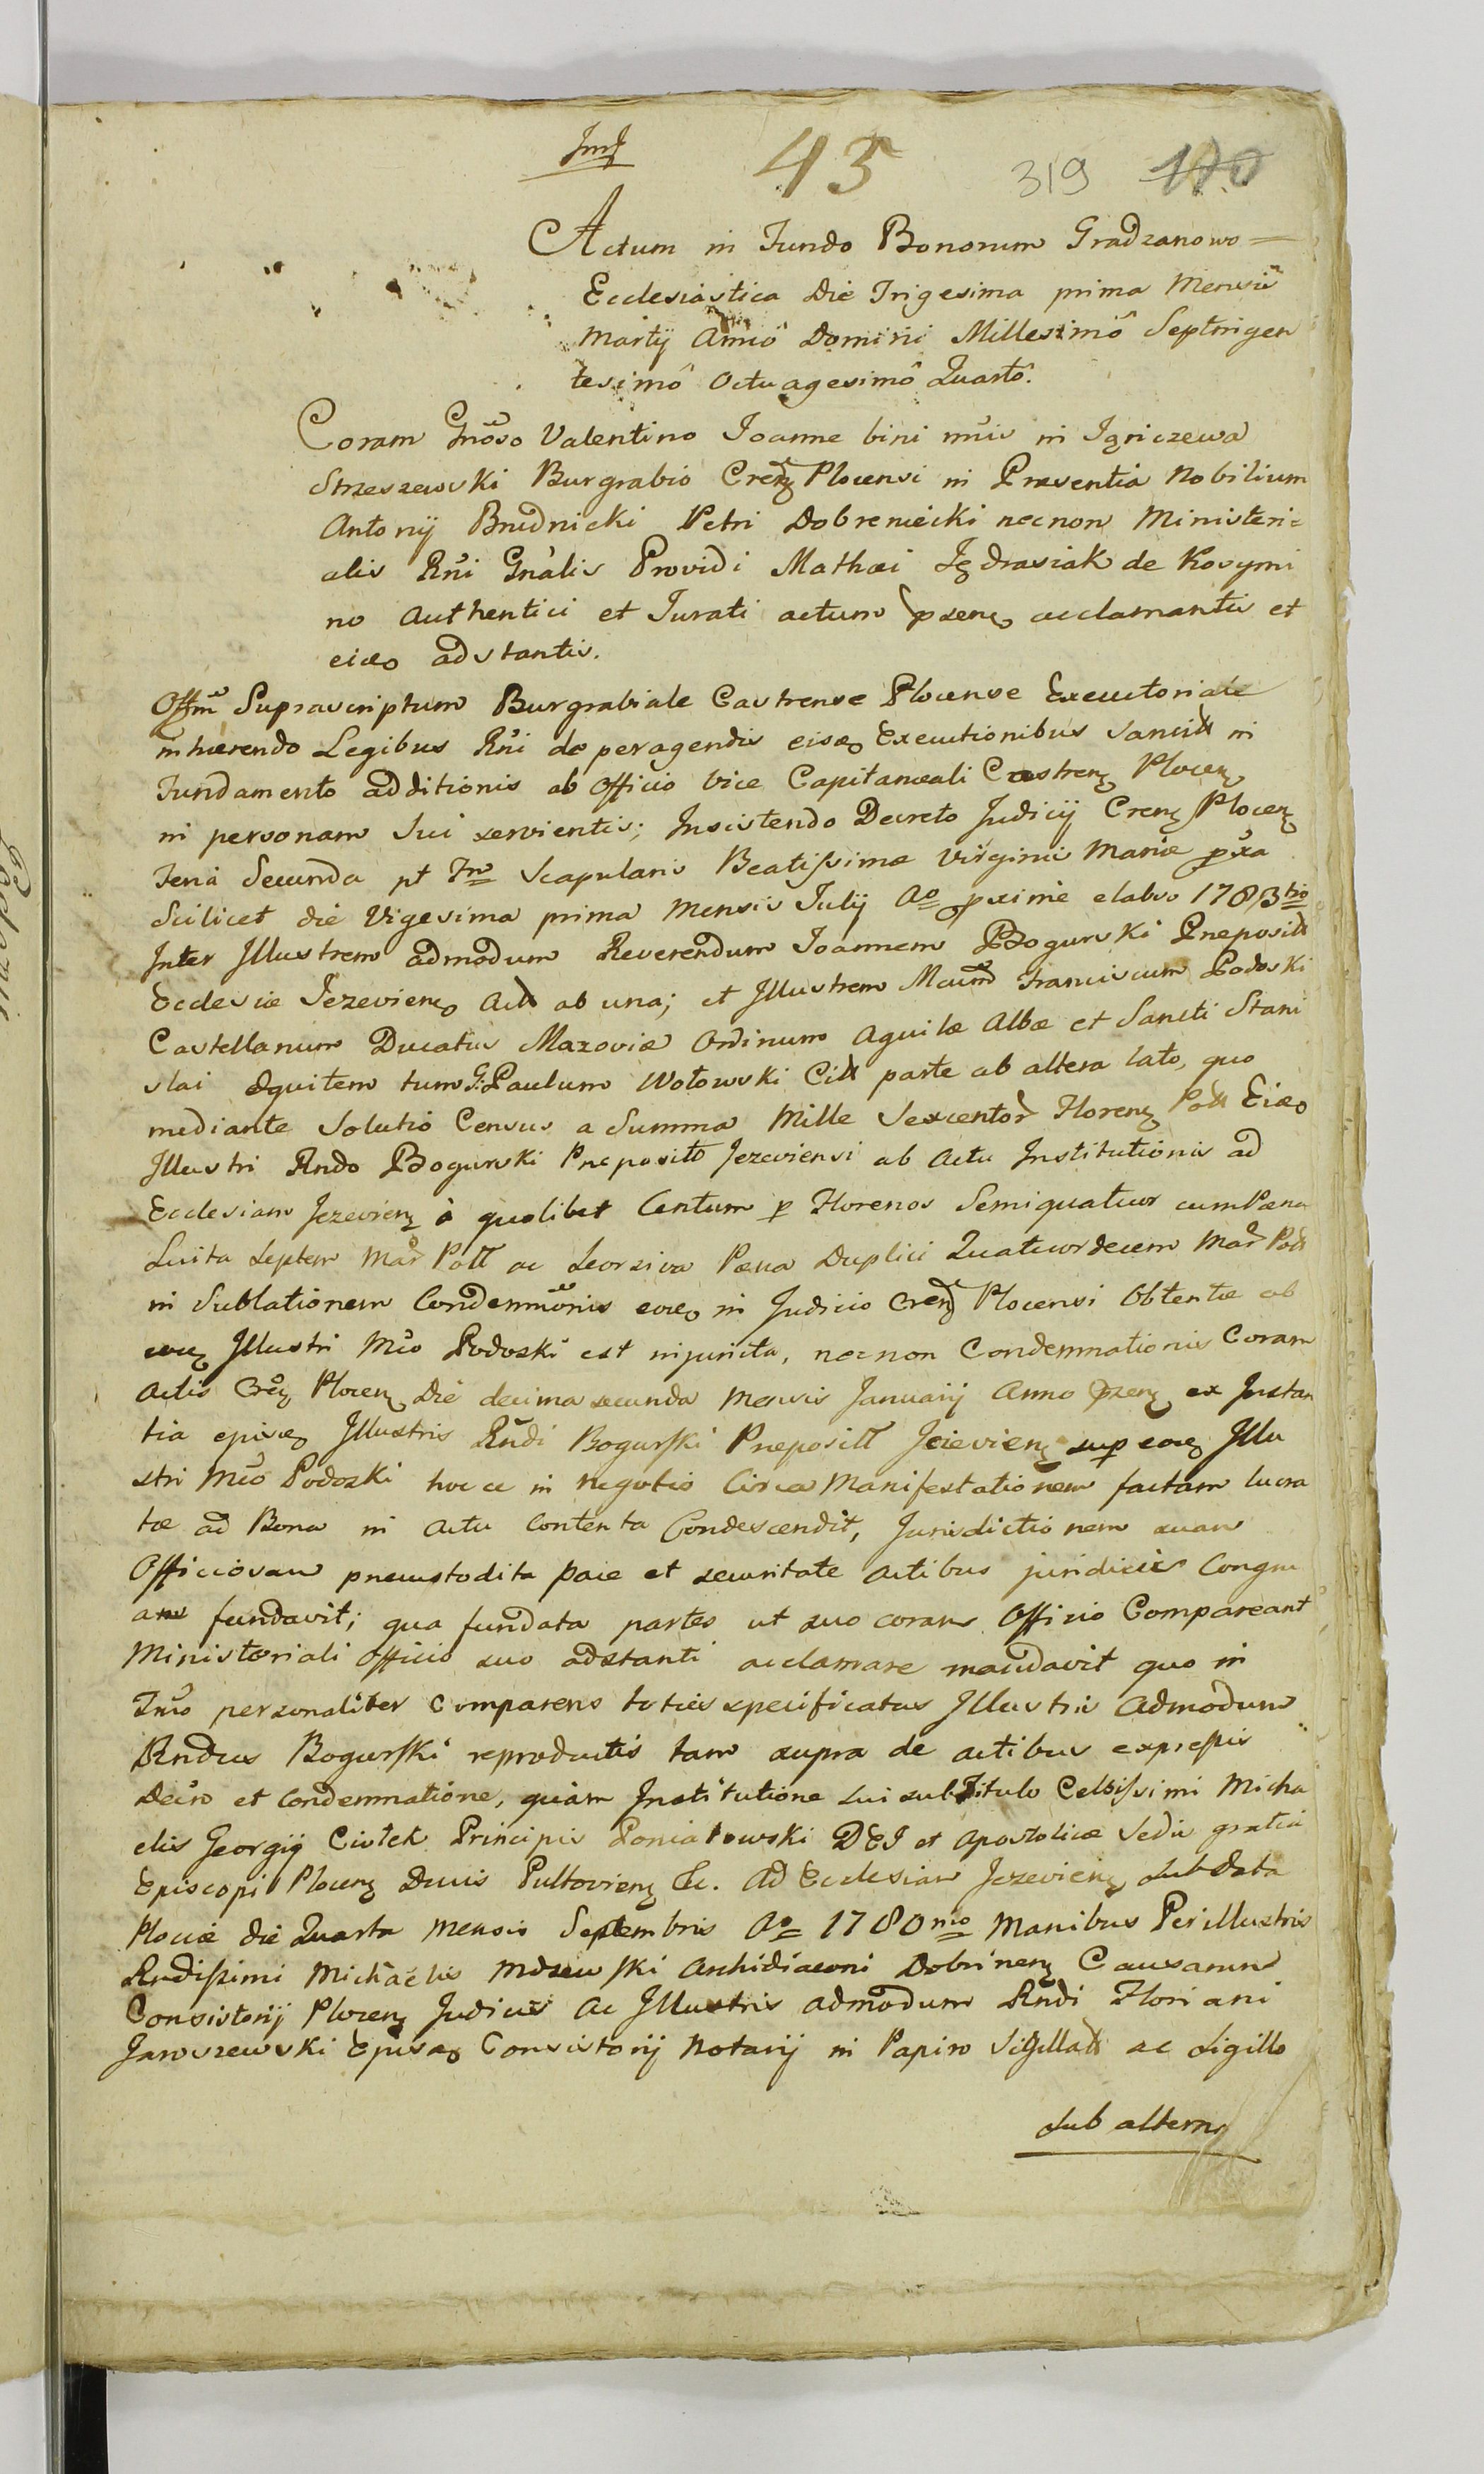 45
319 110
Actum in Fundo Bonorum Gradzanowo =
Ecclesiastica Die Trigesima prima Mensis
Martij Anno Domini Millesimo Septingen
tesimo Octuagesimo Quarto.
Coram Gnoso Valentino Joanne bini nuis in
Strzeszewski Burgrabio Crenz Plocensi in Præsentia Nobilium
Antonij Brudnicki Petri Dobreniecki necnon Ministeri=
alis Rni Gnalis Providi Mathæi Jędrasiak de Kosymi
no Authentici et Jurati actum præsenq acclamantis et
eidq adstantis.
Offm Suprascriptum Burgrabiale Castrense Plocense Executoriale
inhærendo Legibus Rni de peragendis eisq Executionibus Sancitt in
Fundamento additionis ab Officio Vice Capitaneali Castrenz Plocenz
in personam Sui servientis; Insistendo Decreto Judicij Crenz Plocenz
Feria Secunda pt Fm Scapularis Beatissimæ Virginis Mariæ pxa
Scilicet die Vigesima prima Mensis Julij Ao pxime elabso 1783tio
Inter Illustrem admodum Reverendum Joannem Bogurski Præpositt
Ecclesiæ Jezevienq Actt ab una; et Illustrem Mcum Franciscum Podoski
Castellanum Ducatus Mazoviæ Ordinum Aquilæ Albæ et Sancti Stani
slai Equitem tum G: Paulum Wołowski Citt parte ab altera lato, quo
mediante Solutio Census a Summa Mille Sexcentor Florenz Poll Eidq
Illustri Rndo Bogurski Præposito Jezeviensi ab Actu Institutionis ad
Ecclesiam Jezevienz à quolibet Centum p Florenos Semiquatuor cum Pæna
Luita Septem Mar Poll ac Seorsiva Pæna Duplici Quatuordecem Mar Poll
in Sublationem Condemnonis eorq in Judicio Crenz Plocensi Obtentæ ab
eodz Illustri Mco Podoski est injuncta, necnon Condemnationis Coram
Actis Crenz Plocenz Die decima secunda Mensis Januarij Anno præsenz ex Instan
tia ejusdz Illustris Rndi Bogurski Præpositt Jezevienz sup eodz Illu
stri Mco Podoski hocce in negotio Circa Manifestationem factam lucra
tæ ad Bona in Actu Contenta Condescendit, Jurisdictionem suam
Officiosam præcustodita pace et securitate actibus juridicis Congru
am fundavit; qua fundata partes ut suo coram Officio Compareant
Ministeriali Officio suo adstanti acclamare mandavit quo in
Tmo personaliter Comparens toties specificatus Illustris Admodum
Rndus Bogurski reproductis tam supra de actibus expressis
Decro et Condemnatione, quàm Institutione Sui sub Titulo Celsissimi Micha
elis Georgij Ciołek Principis Poniatowski DEI et Apostolicæ Sedis gratia
Episcopi Plocenz Ducis Pultovienz &c. Ad Ecclesiam Jezevienz Sub Data
Plociæ die Quarta Mensis Septembris Ao 1780mo Manibus Perillustris
Rndissimi Michaelis Archidiaconi Dobrinenz Causarum
Consistorij Plocenz Judicis Ac Illustris admodum Rndi Floriani
Jaroszewski Ejusdq Consistorij Notarij in Papiro Sigillatt ac Sigillo
Sub altern